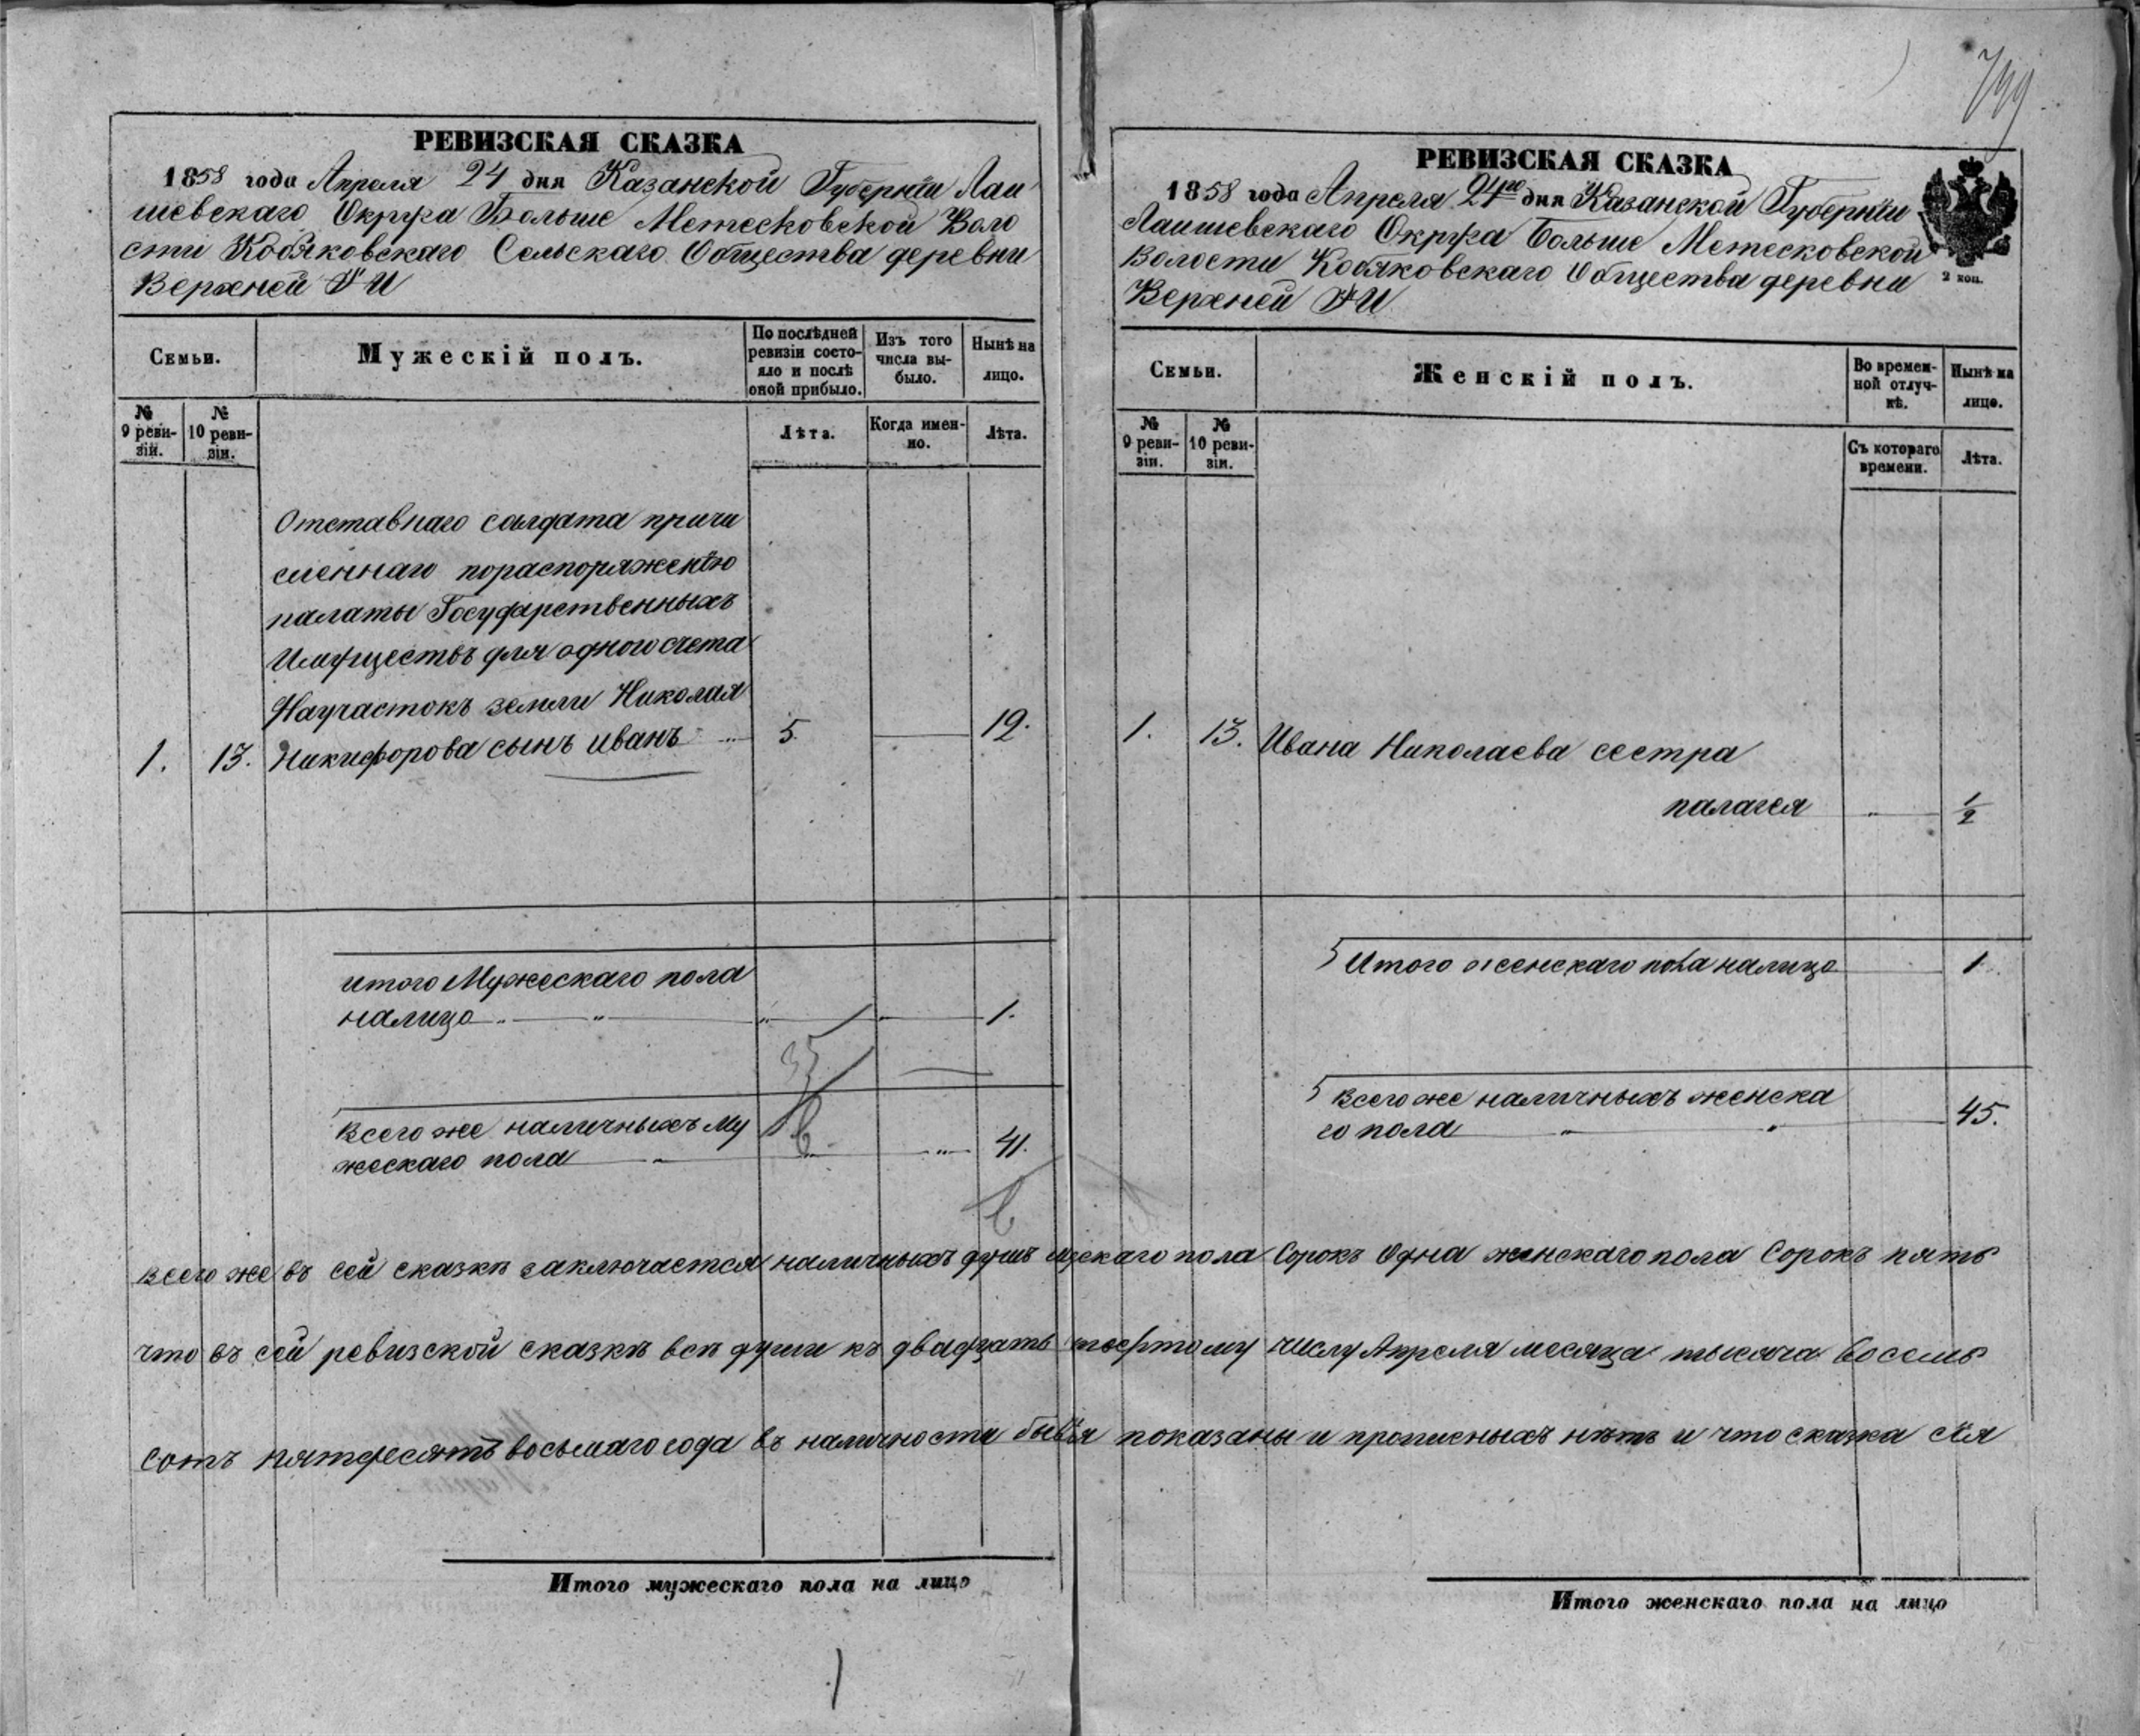 799
РЕВИЗСКАЯ СКАЗКА
1858 года Апреля 24 дня Казанской Губернiи Лаи
шевскаго Округа Больше Метесковской Воло
сти Кобяковскаго Сельскаго Общества деревни
Верхней
Семьи.
Мужескiй полъ.
По послѣдней ревизiи состо-
яло и послѣ
оной прибыло.
Изъ того
числа вы-
было.
Нынѣ на
лицо.
№
9 реви-
зiи.
№
10 реви-
зiи.
Лѣта.
Когда имен-
но.
Лѣта.
Отставнаго салдата причи
сленнаго пораспоряженiю
палаты Государственныхъ
Имуществъ для одного счета
Научастокъ земли Николая
1. 13. Никифорова сынъ иванъ 5. 19.
итого Мужескаго пола
налицо 1.
35
Всего же наличныхъ му
жескаго пола 41.
РЕВИЗСКАЯ СКАЗКА
1858 года Апреля 24го дня Казанской Губернiи
Лаишевскаго Округа Больше Метесковской
Волости Кобяковскаго Общества деревни
Верхней
2 коп.
Семьи.
Женскiй полъ.
Во времен-
ной отлуч-
кѣ.
Нынѣ на
лицо.
№
9 реви-
зiи.
№
10 реви-
зiи.
Съ котораго
времени.
Лѣта.
1. 13. Ивана Николаева сестра
палагея 1/2
Итого женскаго пола налицо 1
Всего же наличныхъ женска
го пола 45.
всего же въ сей сказкѣ заключается наличныхъ душъ мускаго пола Сорокъ Одна женскаго пола Сорокъ пять
что въ сей ревизской сказкѣ всѣ души къ двадцать числу Апреля месяца тысяча восемь
сотъ пятдесятъ восьмаго года въ наличности бывiя показаны и прописныхъ нѣтъ и что сказка сiя
Итого мужескаго пола на лицо
Итого женскаго пола на лицо